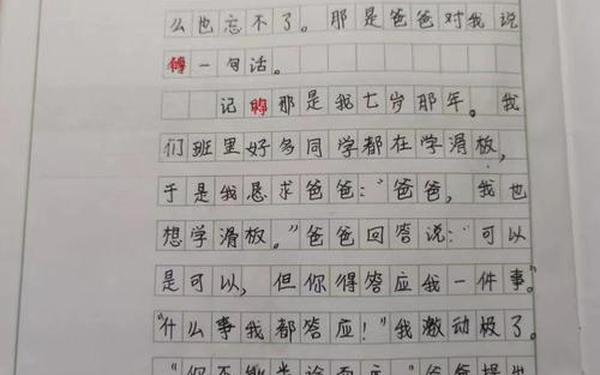 么也忘不了。那是爸爸对我说
一句话。
记那是我七岁那年。我
们班里好多同学都在学滑板，
于是我恳求爸爸："爸爸，我也
想学滑板。"爸爸回答说："可以
是可以，但你得答应我一件事。"
"什么事我都答应！"我激动极了。